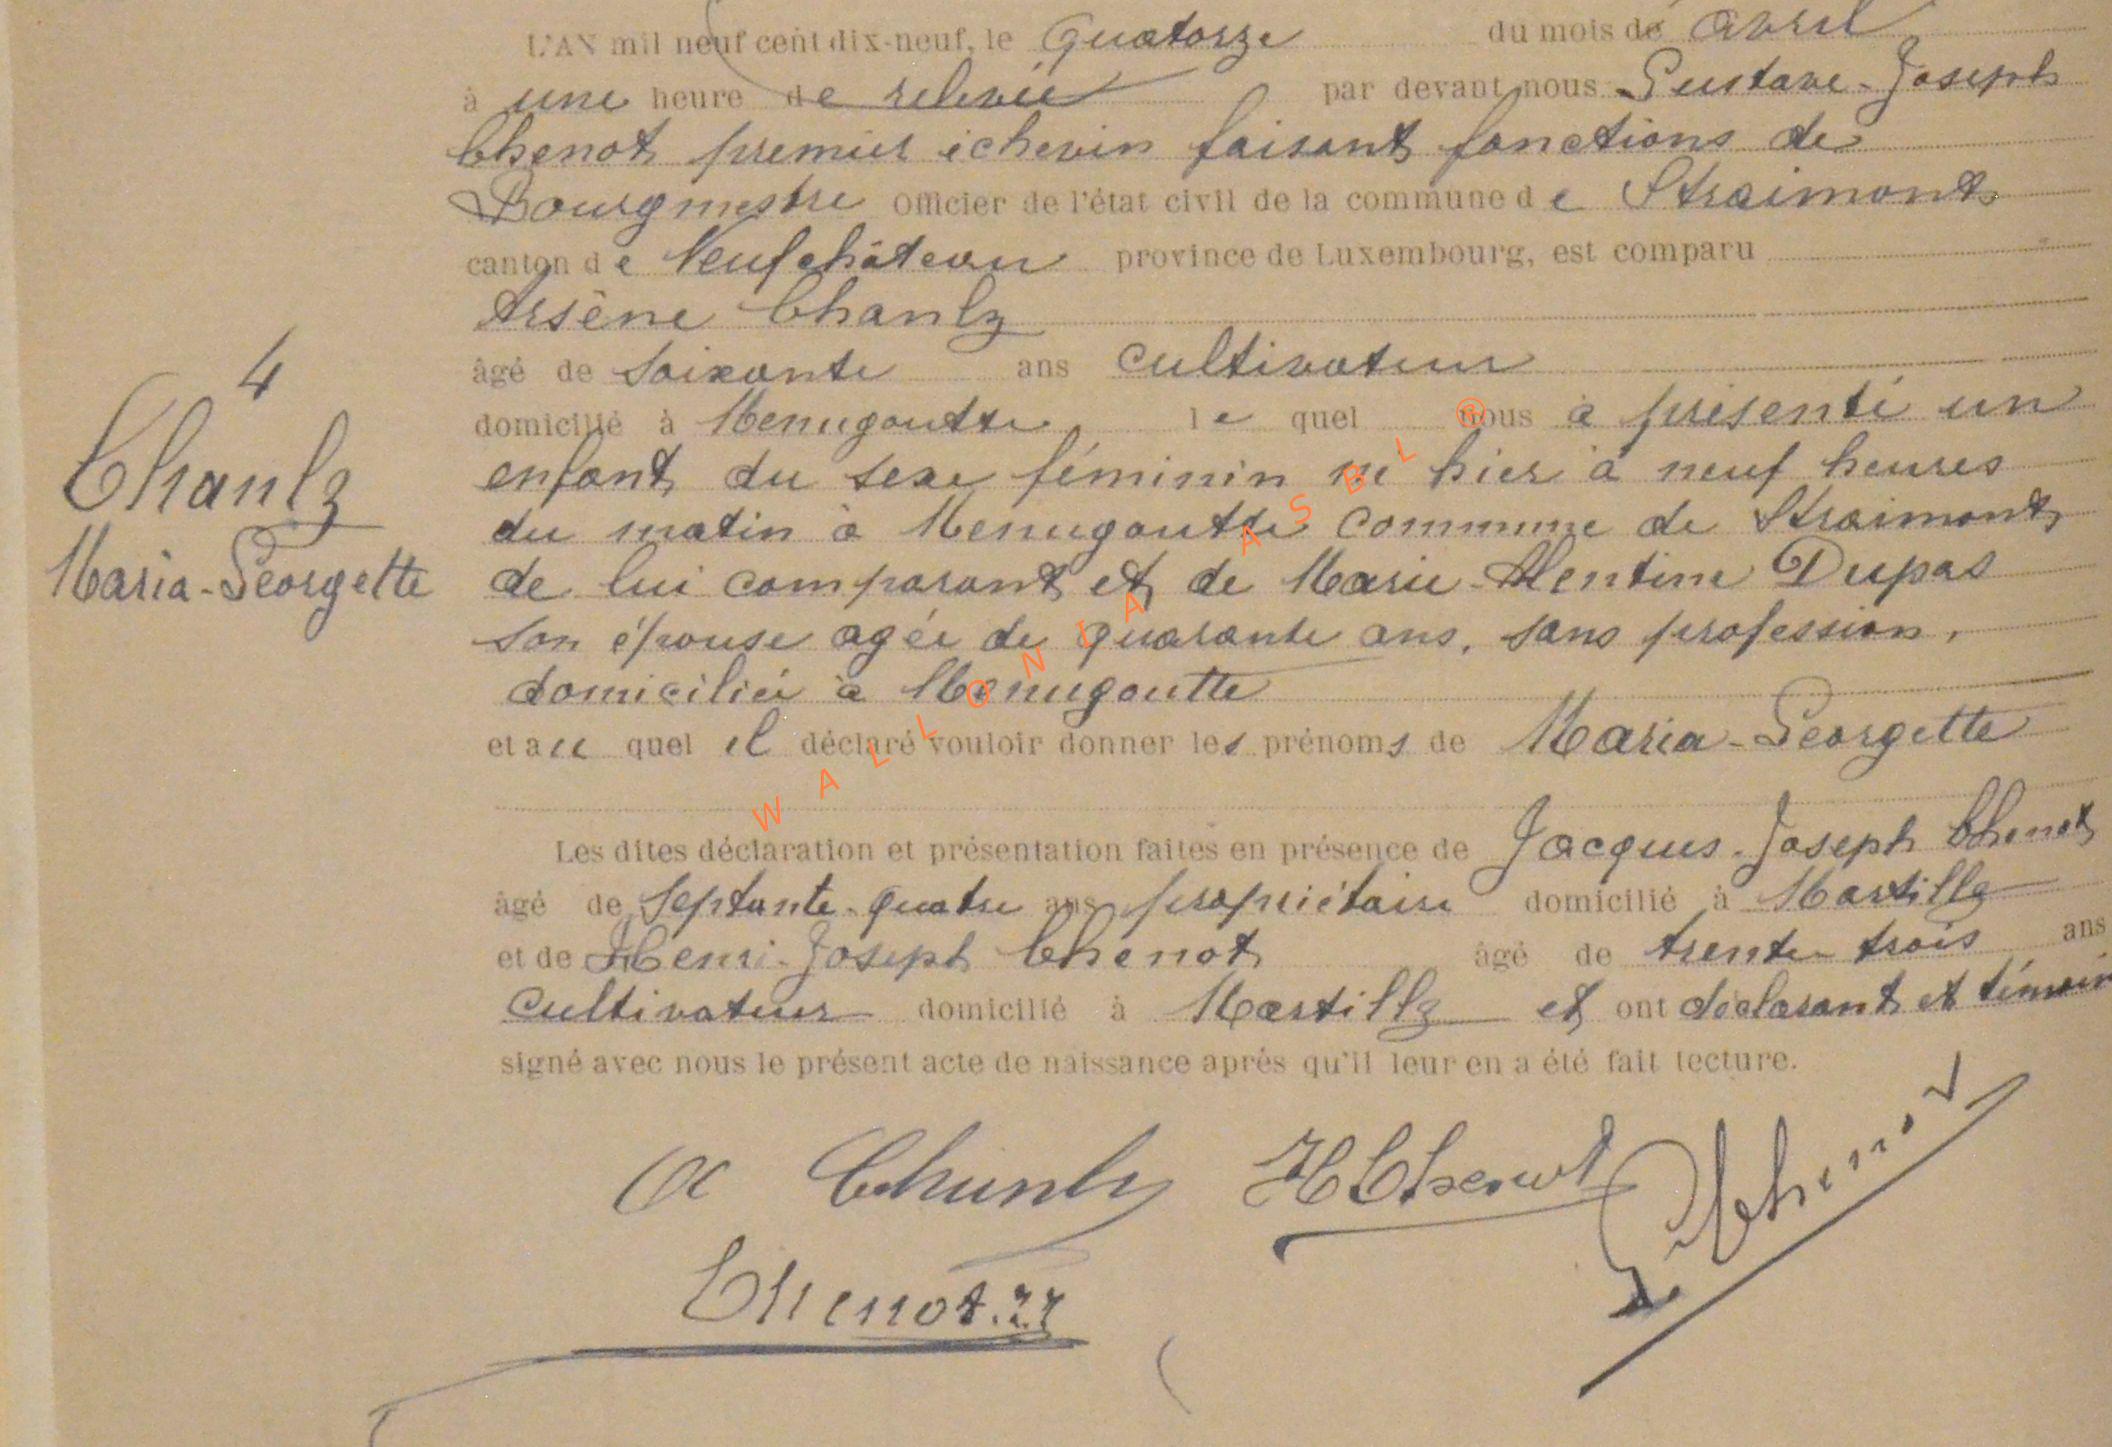 L'AN mil neuf cent dix-neuf, le quatorze du mois de avril
à une heure de relevée par devant nous Gustave-Joseph
Chenot premier échevin faisant fonctions de
Bourgmestre Officier de l'état civil de la commune de Straimont
canton de Neufchâteau province de Luxembourg, est comparu
Arsène Chanlz
âgé de soixante ans cultivateur
domicilié à Menugoutte le quel nous a présenté un
enfant du sexe féminin né hier à neuf heures
du matin à Menugoutte commune de Straimont
de lui comparant et de Marie-Mentine Dupas
son épouse agée de quarante ans, sans profession,
domiciliée à Menugoutte
et au quel il déclaré vouloir donner les prénoms de Maria-Georgette
4
Chanlz
Maria-Georgette
Les dites déclaration et présentation faites en présence de Jacques-Joseph Chenot
âgé de septante-quatre ans propriétaire domicilié à Martilly
et de Henri-Joseph Chenot âgé de trente trois ans
cultivateur domicilié à Martilly et ont déclarant et témoin
signé avec nous le présent acte de naissance après qu'il leur en a été fait lecture.
A Chanlz H Chenot G. Chenot
Chenot. JJ
WALLONIA ASBL ®